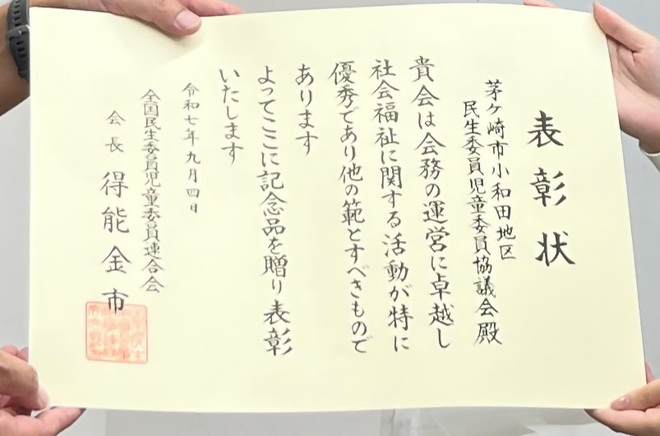 表彰状
茅ケ崎市小和田地区
民生委員児童委員協議会殿
貴会は会務の運営に卓越し
社会福祉に関する活動が特に
優秀であり他の範とすべきもので
あります
よってここに記念品を贈り表彰
いたします
令和七年九月四日
全国民生委員児童委員連合会
会長 得能金市